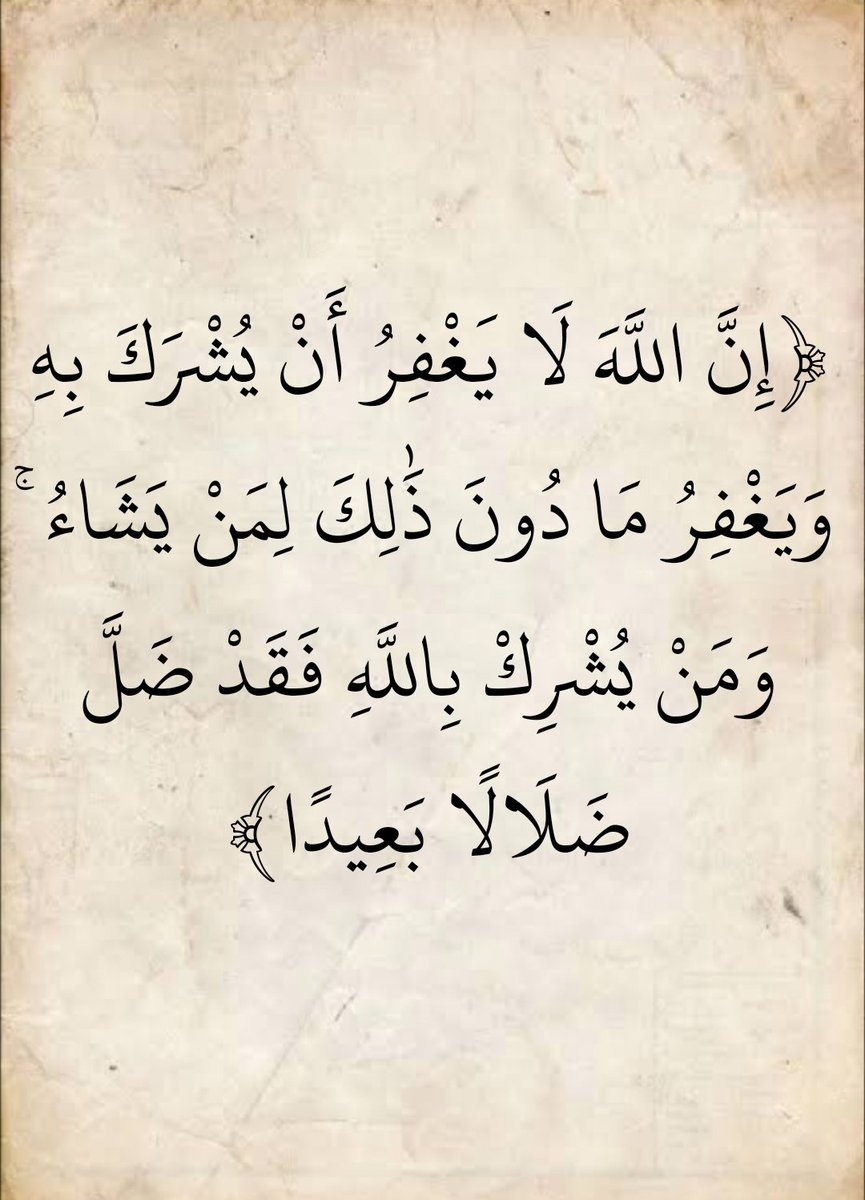 ﴿إِنَّ اللَّهَ لَا يَغْفِرُ أَنْ يُشْرَكَ بِهِ
وَيَغْفِرُ مَا دُونَ ذَٰلِكَ لِمَنْ يَشَاءُ ۚ
وَمَنْ يُشْرِكْ بِاللَّهِ فَقَدْ ضَلَّ
ضَلَالًا بَعِيدًا﴾